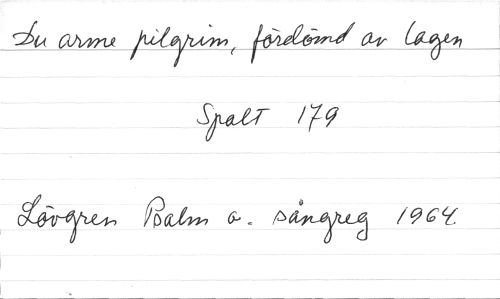 Du arme pilgrim, fördömd av lagen
Spalt 179
Lövgren Psalm o. sångreg 1964.